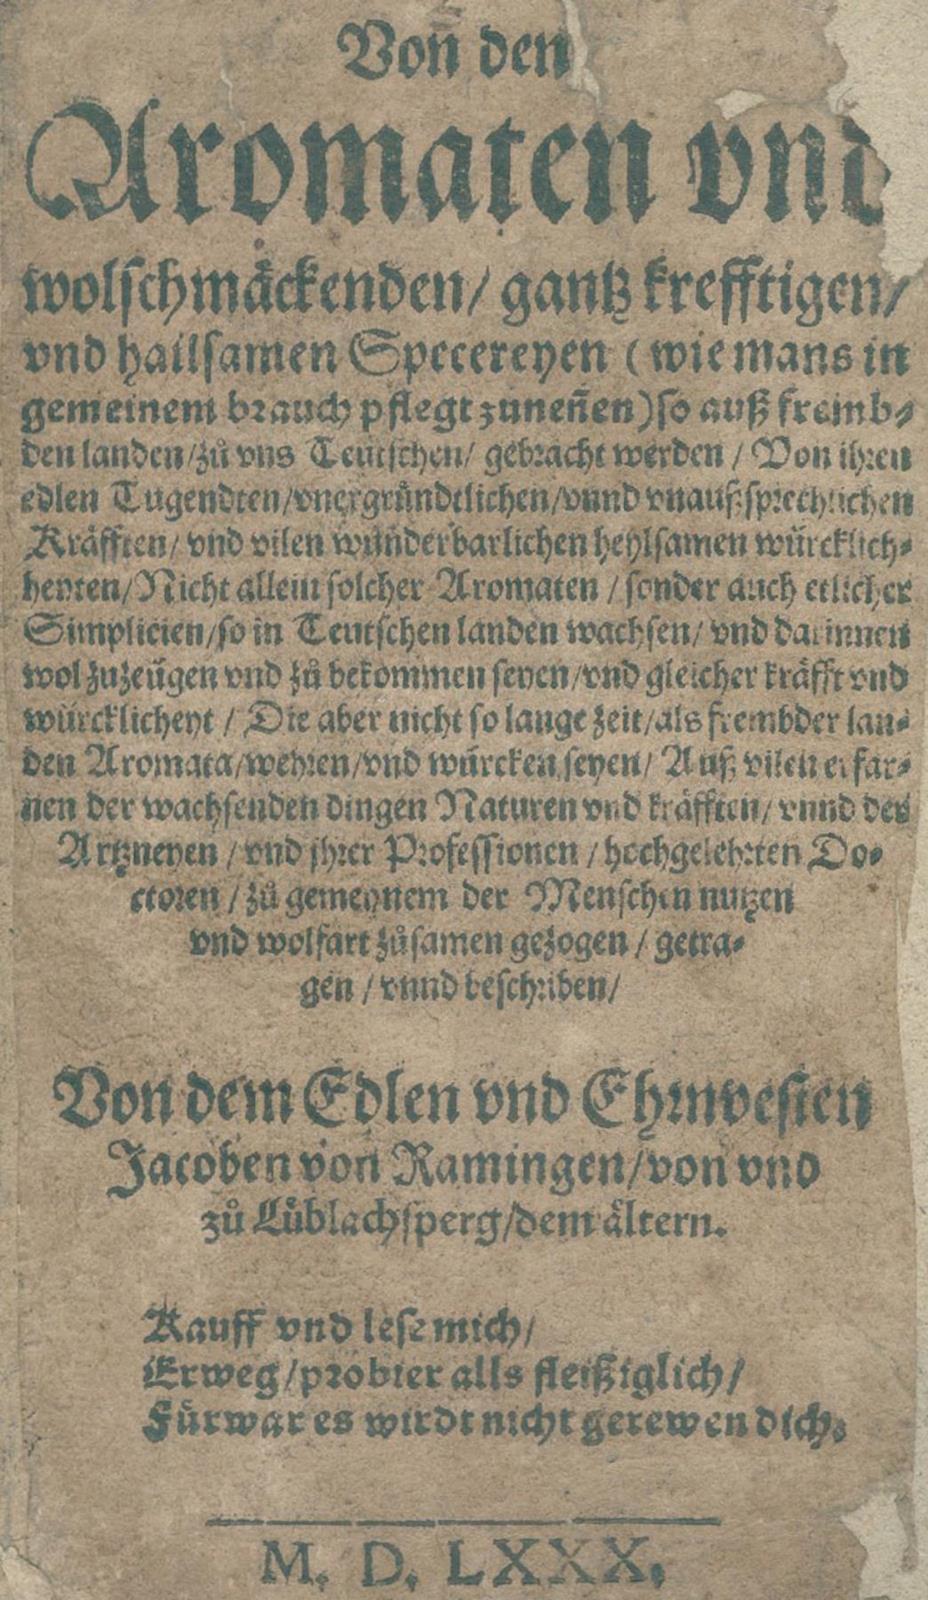 Von den
Aromaten vnd
wolschmäckenden/ gantz krefftigen/
vnd hailsamen Specereyen (wie mans in
gemeinem brauch pflegt zuneñen) so auß fremb⸗
den landen/zů vns Teutschen/ gebracht werden / Von ihren
edlen Tugendten/vnergründtlichen/vnnd vnaußsprechlichen
Kräfften/ vnd vilen wunderbarlichen heylsamen würcklich⸗
heyten/Nicht allein solcher Aromaten / sonder auch etlicher
Simplicien/so in Teutschen landen wachsen/ vnd darinnen
wol zuzeügen vnd zů bekommen seyen/vnd gleicher kräfft vnd
würcklicheyt / Die aber nicht so lange zeit/als frembder lan⸗
den Aromata/wehren/vnd würcken seyen/ Auß vilen erfar⸗
nen der wachsenden dingen Naturen vnd kräfften/ vnnd der
Artzneyen / vnd jhrer Professionen / hochgelehrten Do⸗
ctoren / zů gemeynem der Menschen nutzen
vnd wolfart zůsamen gezogen / getra⸗
gen / vnnd beschriben/
Von dem Edlen vnd Ehrnvesten
Jacoben von Ramingen/von vnd
zů Lüblachsperg/dem ältern.
Kauff vnd lese mich/
Erweg/probier alls fleißiglich/
Fürwar es wirdt nicht gerewen dich.
M. D. LXXX.